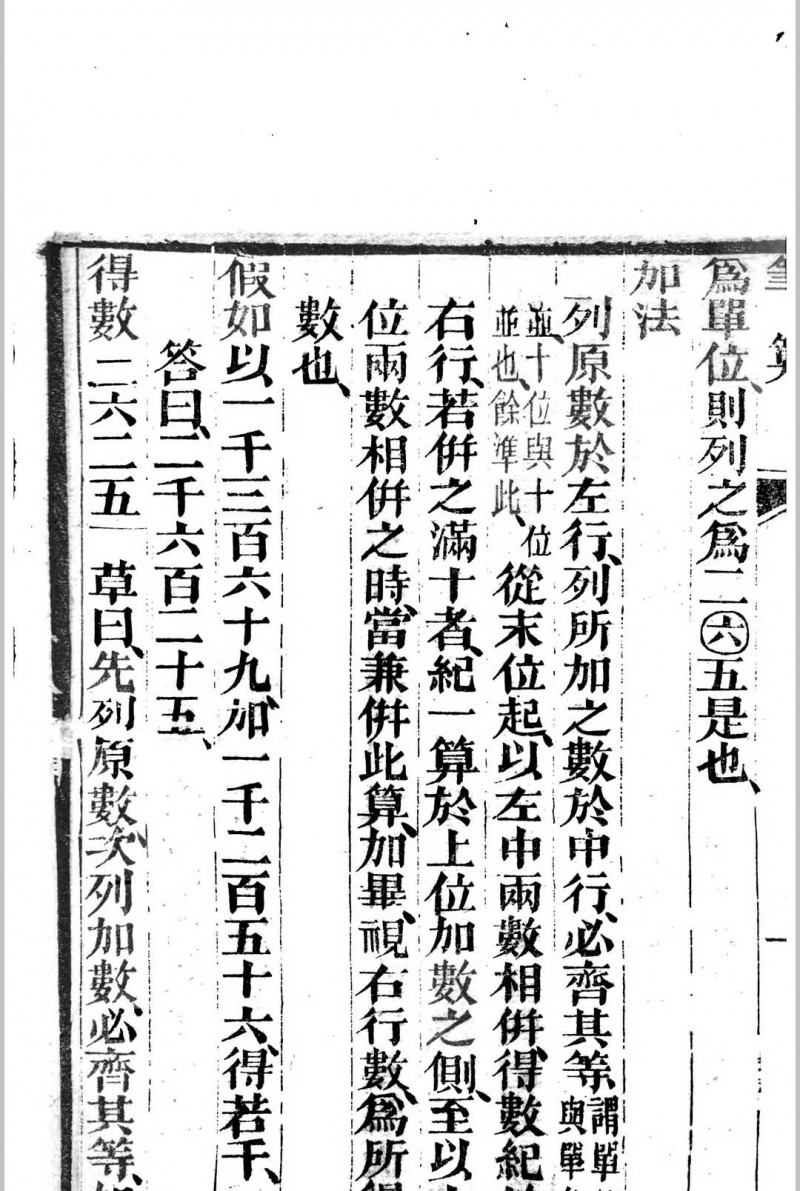 筆算
一
爲單位、則列之爲二㊅五是也、
加法
列原數於左行、列所加之數於中行、必齊其等、謂單
與單
並、十位與十位
並也、餘準此、
從末位起、以左中兩數相併、得數紀
右行、若併之滿十者、紀一算於上位加數之側、至以
位兩數相併之時、當兼併此算、加畢、視右行數、爲所得
數也、
假如以一千三百六十九、加一千二百五十六、得若干、
答曰、二千六百二十五、
得數二六二五 草曰、先列原數、次列加數、必齊其等、